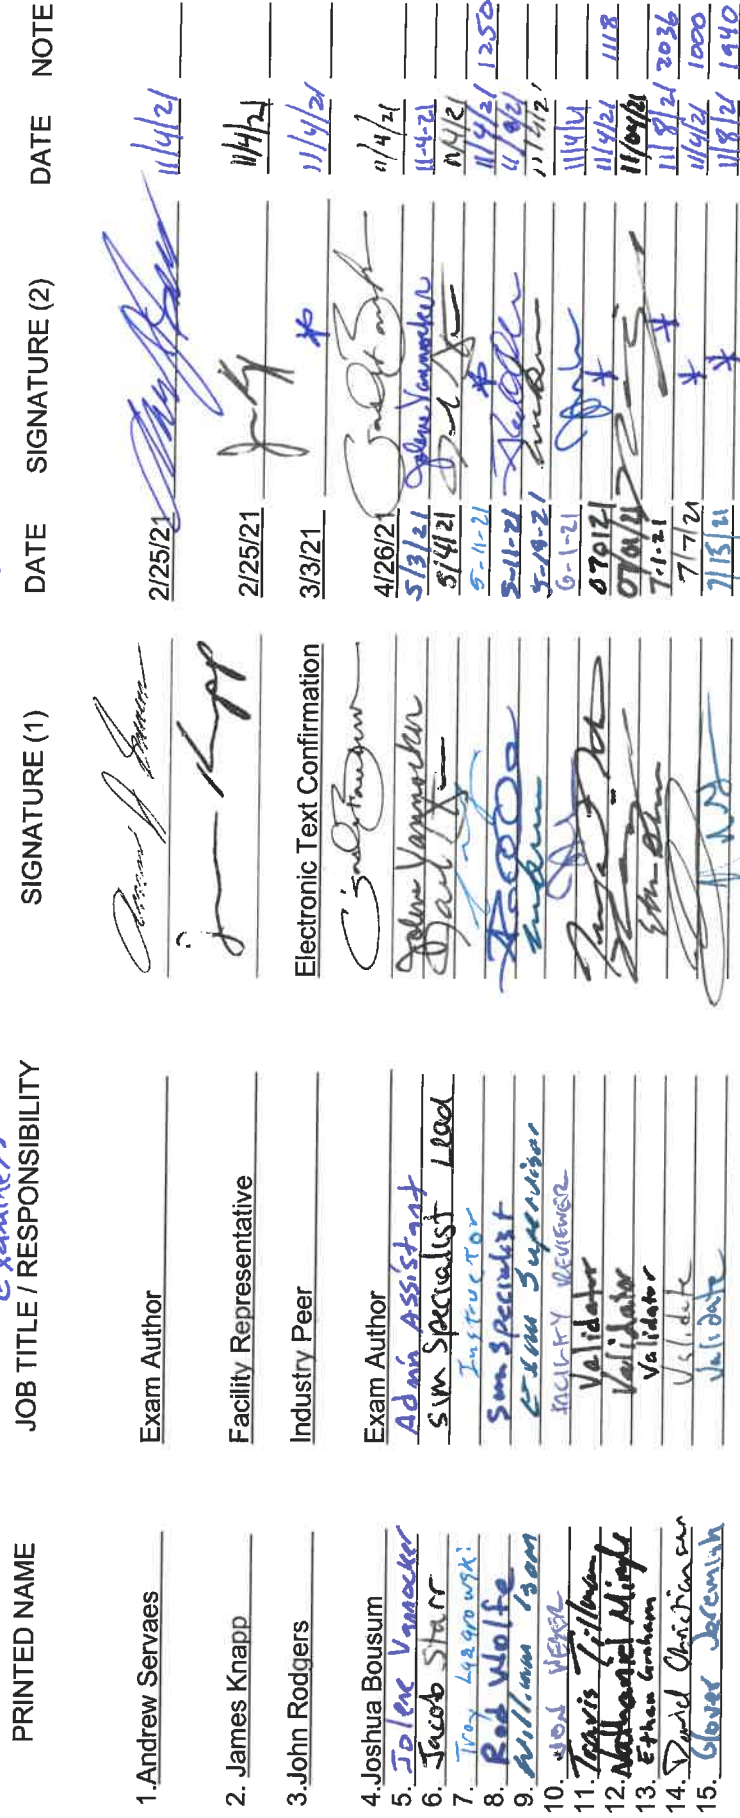 examiners
PRINTED NAME JOB TITLE / RESPONSIBILITY SIGNATURE (1) DATE SIGNATURE (2) DATE NOTE
1.Andrew Servaes Exam Author 2/25/21 11/4/21
2. James Knapp Facility Representative 2/25/21 11/4/21
3.John Rodgers Industry Peer Electronic Text Confirmation 3/3/21 * 11/4/21
4.Joshua Bousum Exam Author 4/26/21 11/4/21
5. Jolene Vannocker Admin Assistant Jolene Vannocker 5/3/21 Jolene Vannocker 11-4-21
6. Jacob Starr Sim Specialist Lead 5/4/21 11/4/21
7. Troy Lazarowski Instructor 5-11-21 * 11/4/21 1250
8. Rob Wolfe Sim Specialist 5-11-21 11/8/21
9. Exam Supervisor 5-19-21
10. Jon FACILITY REVIEWER 6-1-21 11/4/21
11. Travis Tillman Validator 070121 * 11/4/21 1118
12. Nathanael Validator 07/01/21 11/04/21
13. Ethan Graham Validator 7.1.21 * 11/8/21 2036
14. David Christiansen Validate 7/7/21 * 11/4/21 1000
15. Glover Jeremiah Validate 7/15/21 * 11/8/21 1940